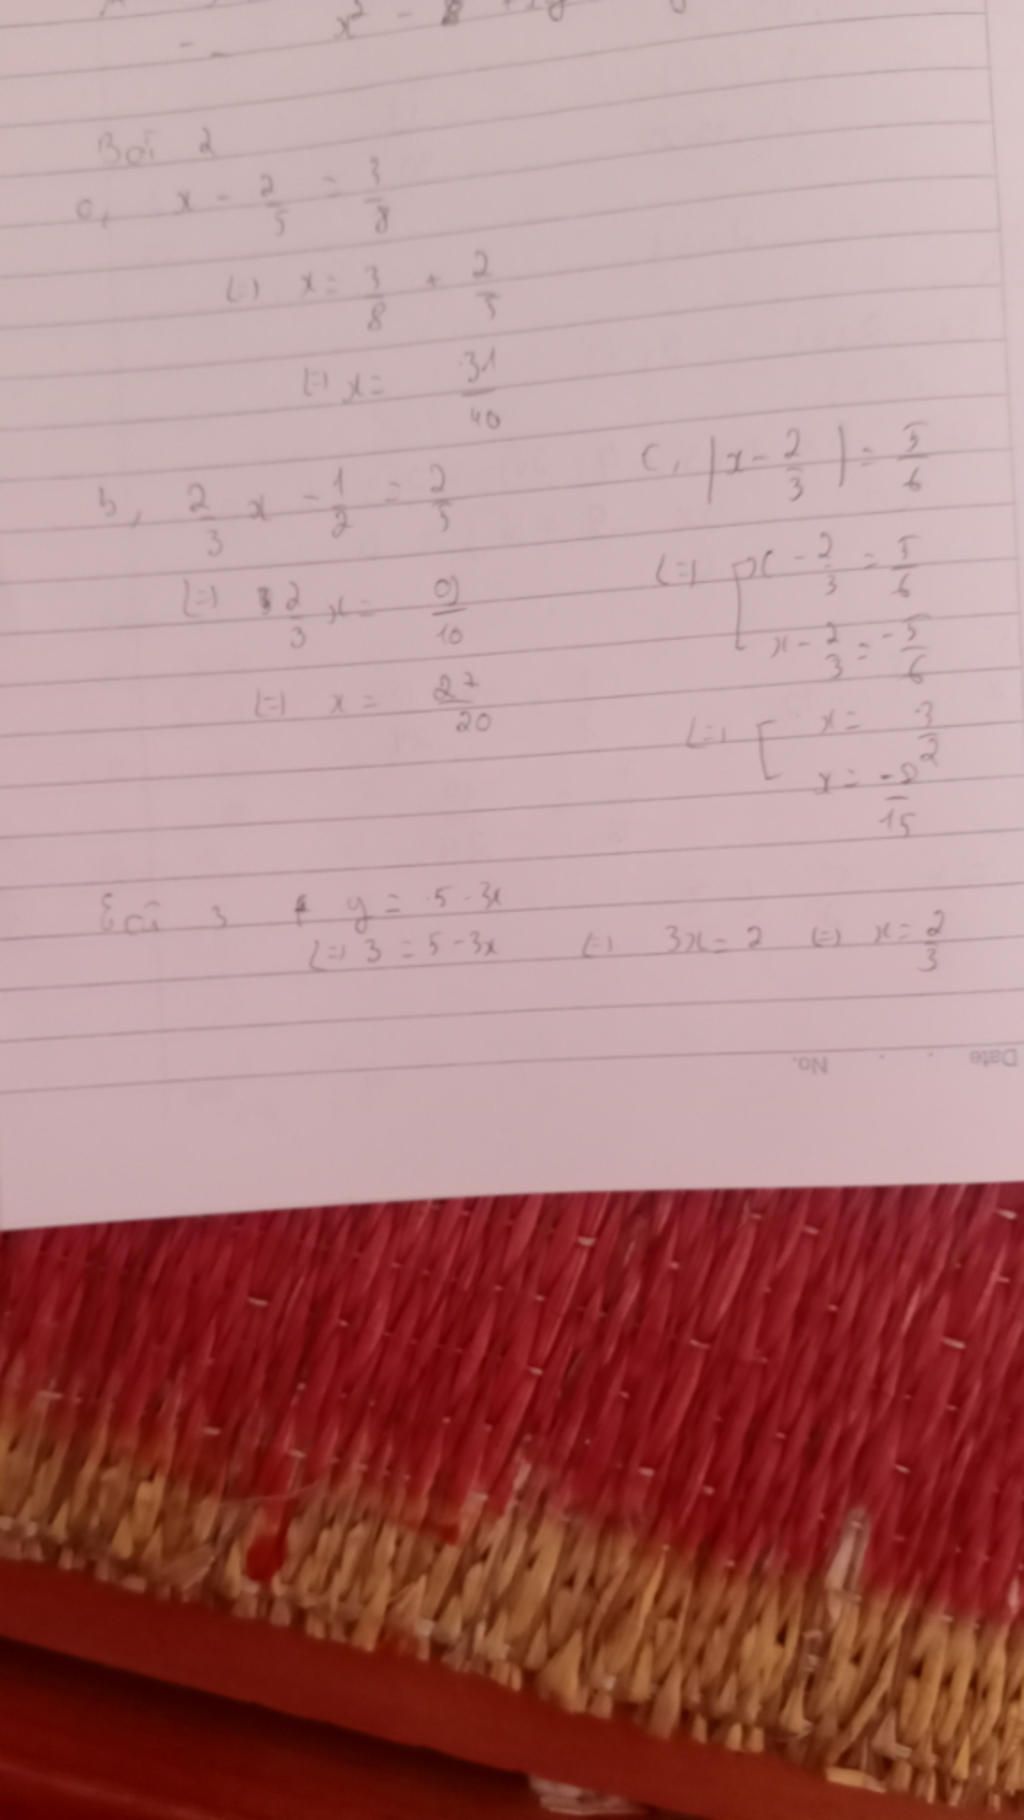 x² - 8
Bài 2
a, x - 2/5 = 3/8
(=) x = 3/8 + 2/5
(=) x = 31/40
b, 2/3 x - 1/2 = 2/5
(=) 2/3 x = 9/10
(=) x = 27/20
c, |x - 2/3| = 5/6
(=) [ x - 2/3 = 5/6
x - 2/3 = -5/6
(=) [ x = 3/2
x = /15
Bài 3 y = 5 - 3x
(=) 3 = 5 - 3x (=) 3x = 2 (=) x = 2/3
Date No.